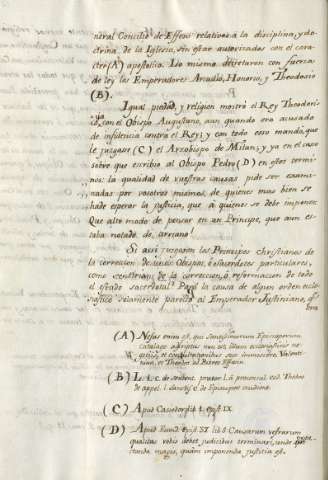 neral Concilio de Effeso relativos a la disciplina, y doc-
trina de la Iglesia, sin estar autorizados con el carac-
ter (A) apostolico. Lo mismo decretaron con fuerza
de ley los Emperadores Arcadio, Honorio, y Theodosio
(B).
Igual piedad, y religion mostró el Rey Theodori-
co, con el Obispo Augustano, aun quando era acusado
de infidencia contra el Rey; y con todo esso manda, que
le juzgase (C) el Arzobispo de Milan; y ya en el caso
sobre que escribio al Obispo Pedro (D) en estos termi-
nos: la qualidad de vuestras causas pide ser exami-
nadas por vosotros mismos, de quienes mas bien se
ha de esperar la justicia, que a quienes se debe imponer.
Que alto modo de pensar en un Principe, que aun es-
taba notado de arriano!
Si assi juzgaron los Principes christianos de
la correccion de los Obispos, o sacerdotes particulares,
como sentirian de la correccion, o reformacion de todo
el estado sacerdotal? Para la causa de algun orden ecle-
siastico solamente pareció al Emperador Justiniano, q.e
(A) Nefas enim est, qui Sanctissimorum Episcoporum
catalogo adscriptus non est illum ecclesiasticis ne-
gotiis, et consultationibus sese immiscere. Valenti-
nian, et Theodos. ad Patres Ephesin.
(B) L.
(C) Apud Casiodor. lib. 1. epist. IX.
(D) Apud eund. Epist. 37 lib. 3 Causarum vestrarum
qualitas vobis debet judicibus terminari, unde spec-
tanda magis, quam imponenda justitia est.